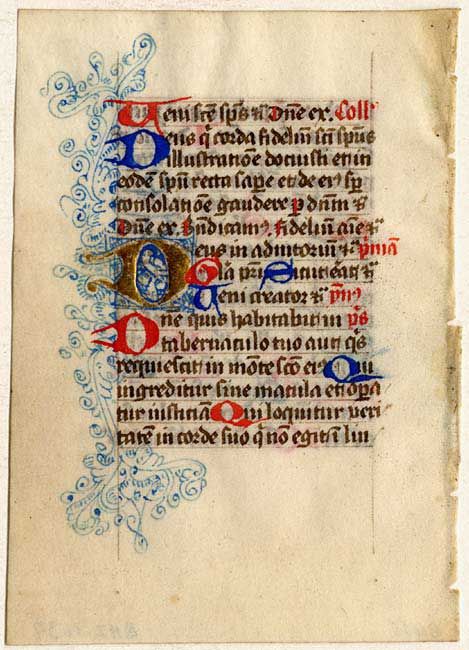 Veni scē sp̄s ꝛc̄ Dn̄e ex. Coll
Deus q̄ corda fideliū scī sp̄us
illustratiōe docuisti et in
eodē spū recta saꝑe et de eiꝰ sꝑ
consolatiōe gaudere ꝑ dn̄m ꝛc̄
Dn̄e ex. Bn̄dicamꝰ. Fideliū aīe ꝛc̄
Deus in adiutoriū ꝛc̄
Glā pr̄i Sicut erāt ꝛc̄
Veni creator ꝛc̄ pͫꝰ
Dn̄e quis habitabit in p̄s
tabernaculo tuo aut q̄s
requiescꝫ in mōte scō eiꝰ Qui
ingreditur sine macula et oꝑa
tur iusticiā Qui loquitur veri
tatē in corde suo q̄ nō egit ī lin